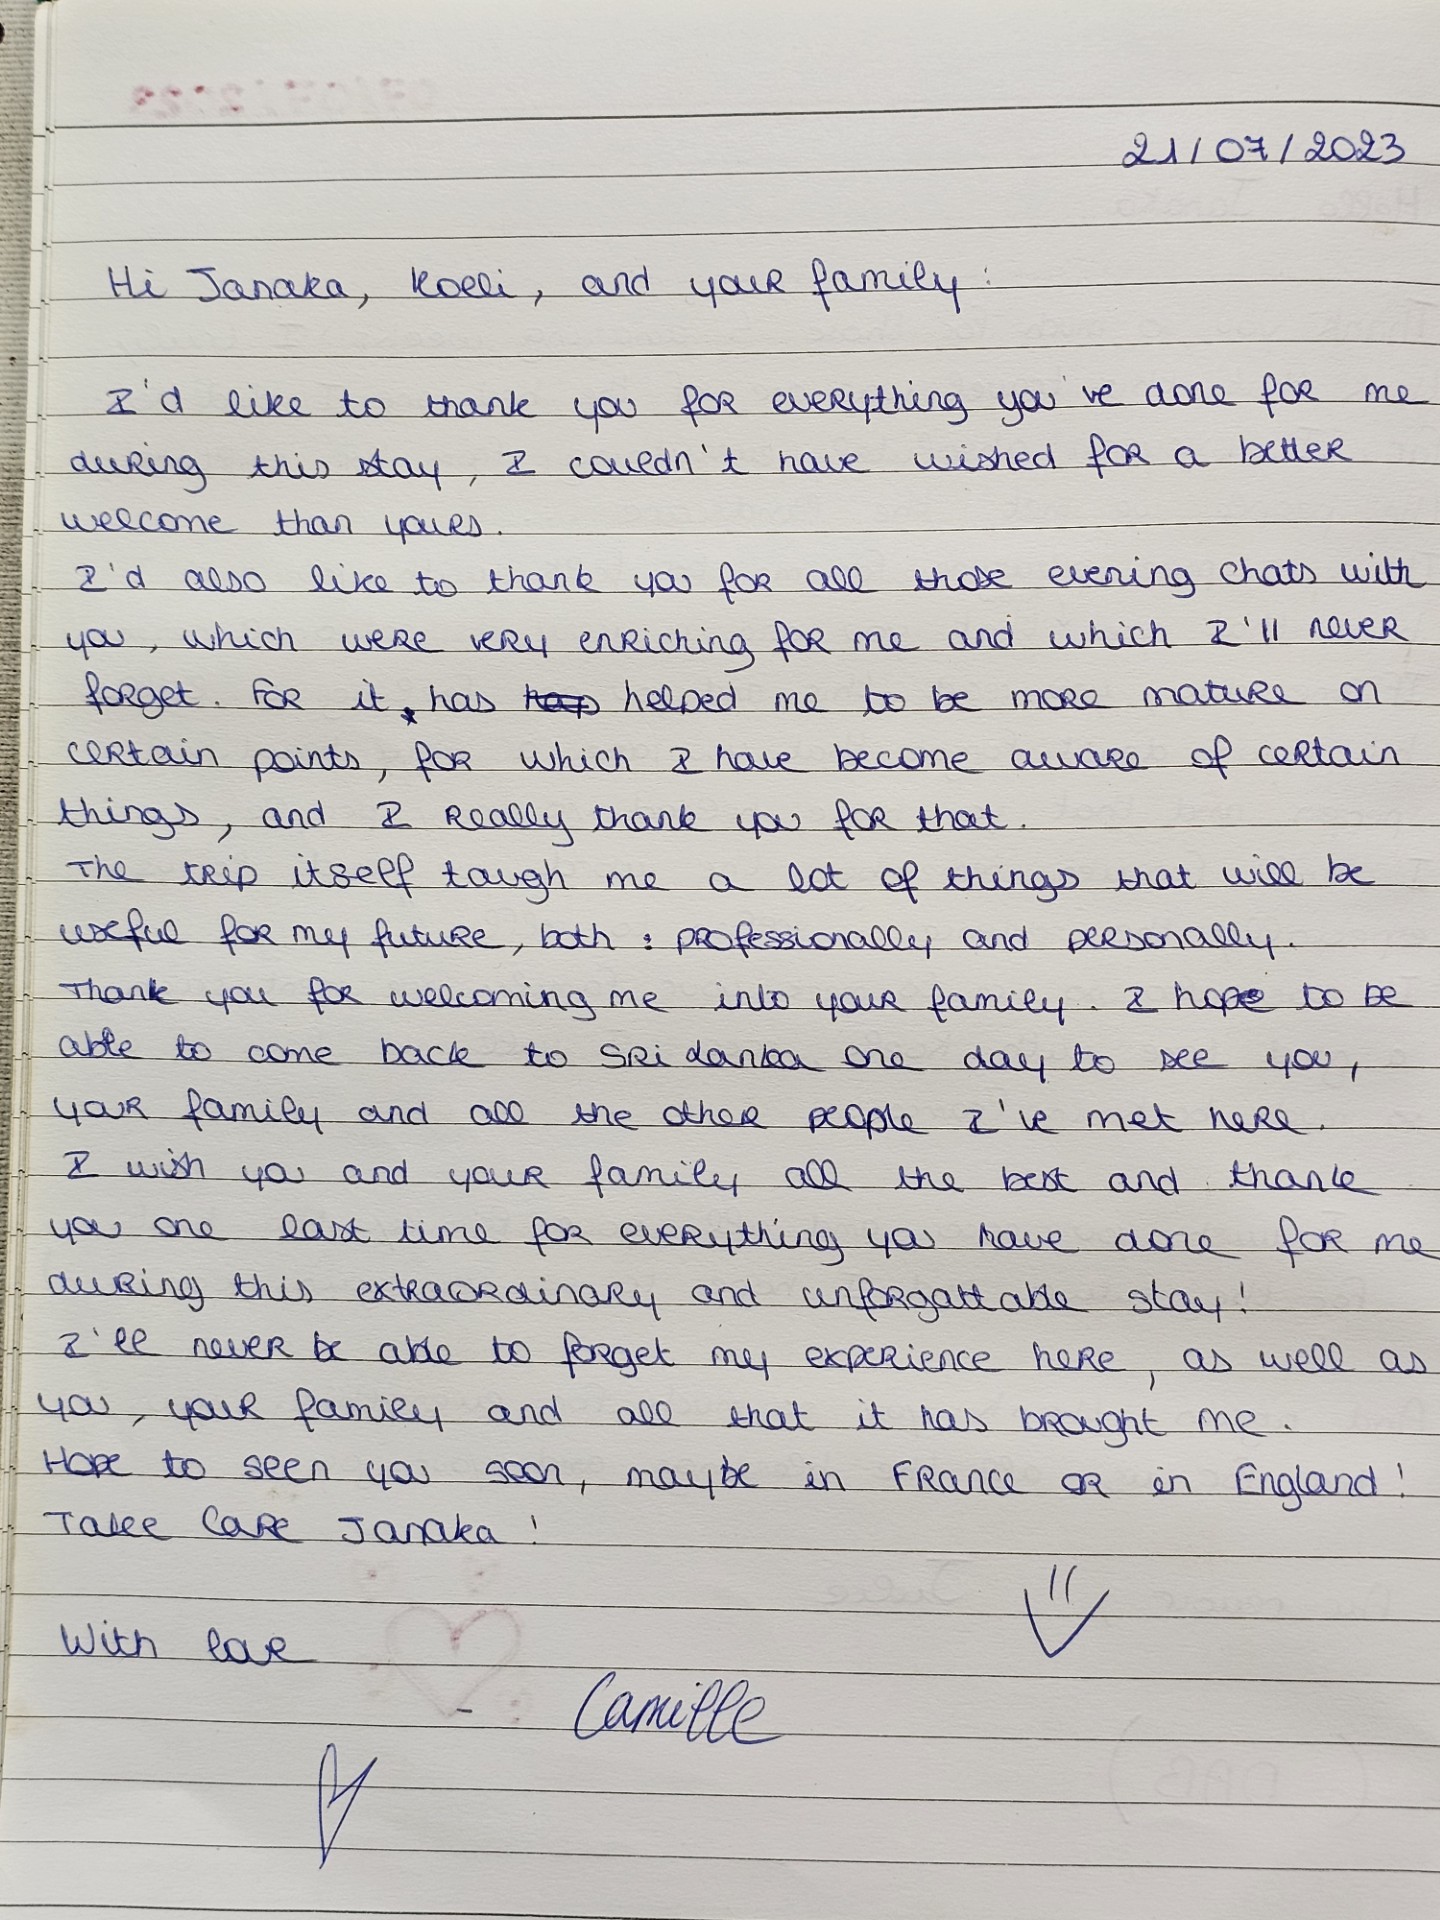 21/07/2023
Hi Janaka, Koeli, and your family:
I'd like to thank you for everything you've done for me
during this stay, I couldn't have wished for a better
welcome than yours.
I'd also like to thank you for all those evening chats with
you, which were very enriching for me and which I'll never
forget. For it has helped me to be more mature on
certain points, for which I have become aware of certain
things, and I really thank you for that.
The trip itself tough me a lot of things that will be
useful for my future, both : professionally and personally.
Thank you for welcoming me into your family. I hope to be
able to come back to Sri Lanka one day to see you,
your family and all the other people I've met here.
I wish you and your family all the best and thank
you one last time for everything you have done for me
during this extraordinary and unforgattable stay!
I'll never be able to forget my experience here, as well as
you, your family and all that it has brought me.
Hope to seen you soon, maybe in France or in England!
Take Care Janaka!
With love
Camille